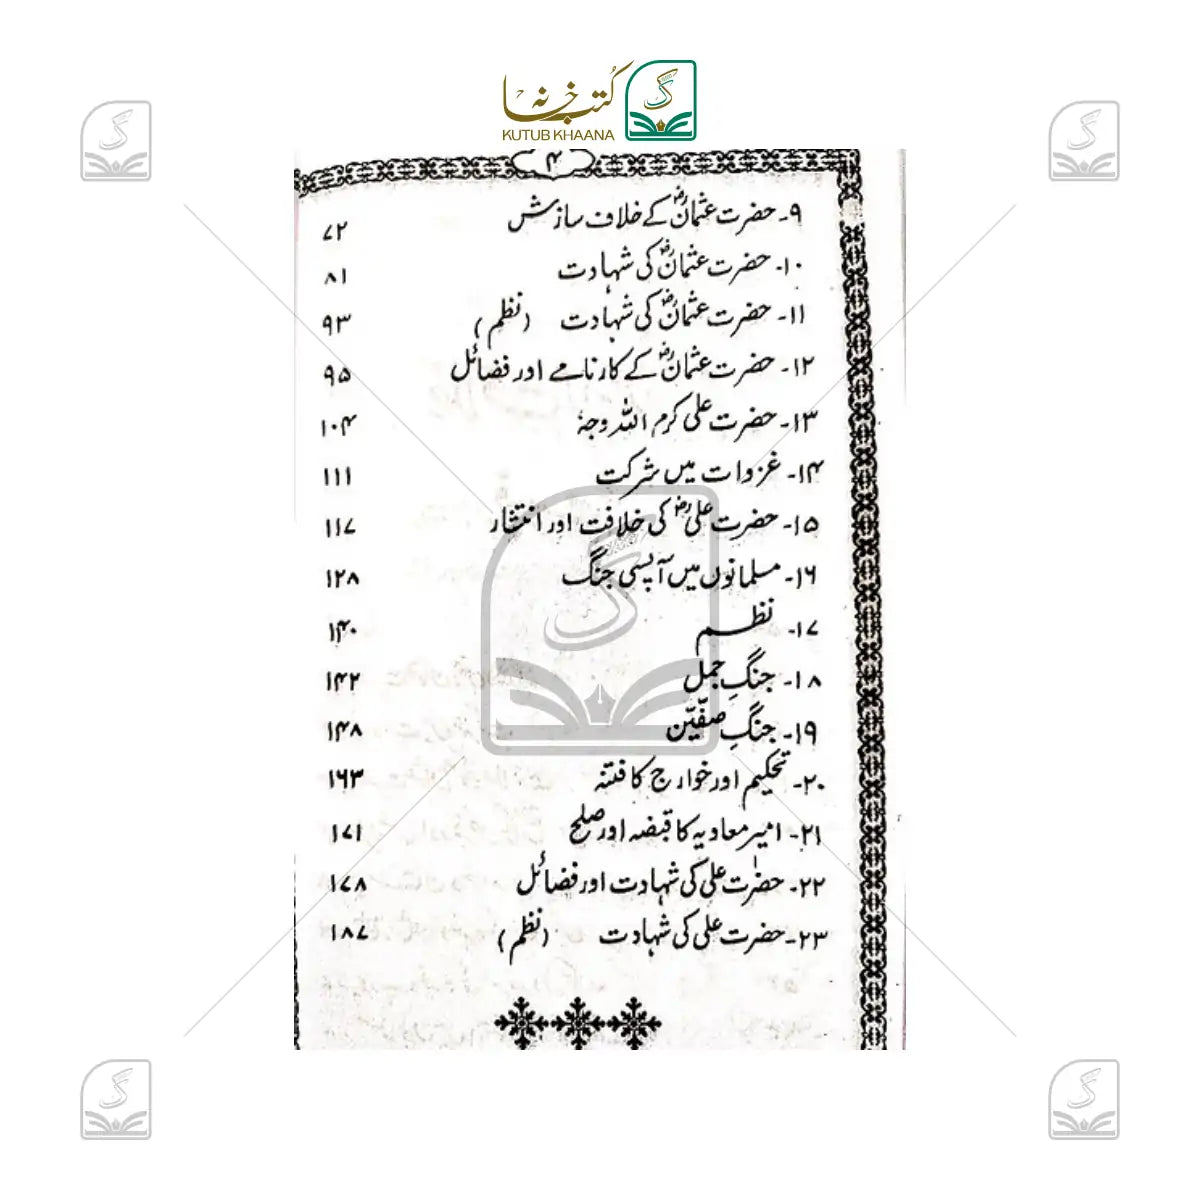 کتب خانہ
KUTUB KHAANA
۴
۹۔ حضرت عثمانؓ کے خلاف سازش ۷۲
۱۰۔ حضرت عثمانؓ کی شہادت ۸۱
۱۱۔ حضرت عثمانؓ کی شہادت (نظم) ۹۳
۱۲۔ حضرت عثمانؓ کے کارنامے اور فضائل ۹۵
۱۳۔ حضرت علی کرم اللہ وجہٗ ۱۰۴
۱۴۔ غزوات میں شرکت ۱۱۱
۱۵۔ حضرت علیؓ کی خلافت اور انتشار ۱۱۷
۱۶۔ مسلمانوں میں آپسی جنگ ۱۲۸
۱۷۔ نظم ۱۴۰
۱۸۔ جنگِ جمل ۱۴۲
۱۹۔ جنگِ صفّین ۱۴۸
۲۰۔ تحکیم اور خوارج کا فتنہ ۱۶۳
۲۱۔ امیر معاویہ کا قبضہ اور صلح ۱۷۱
۲۲۔ حضرت علی کی شہادت اور فضائل ۱۷۸
۲۳۔ حضرت علی کی شہادت (نظم) ۱۸۷